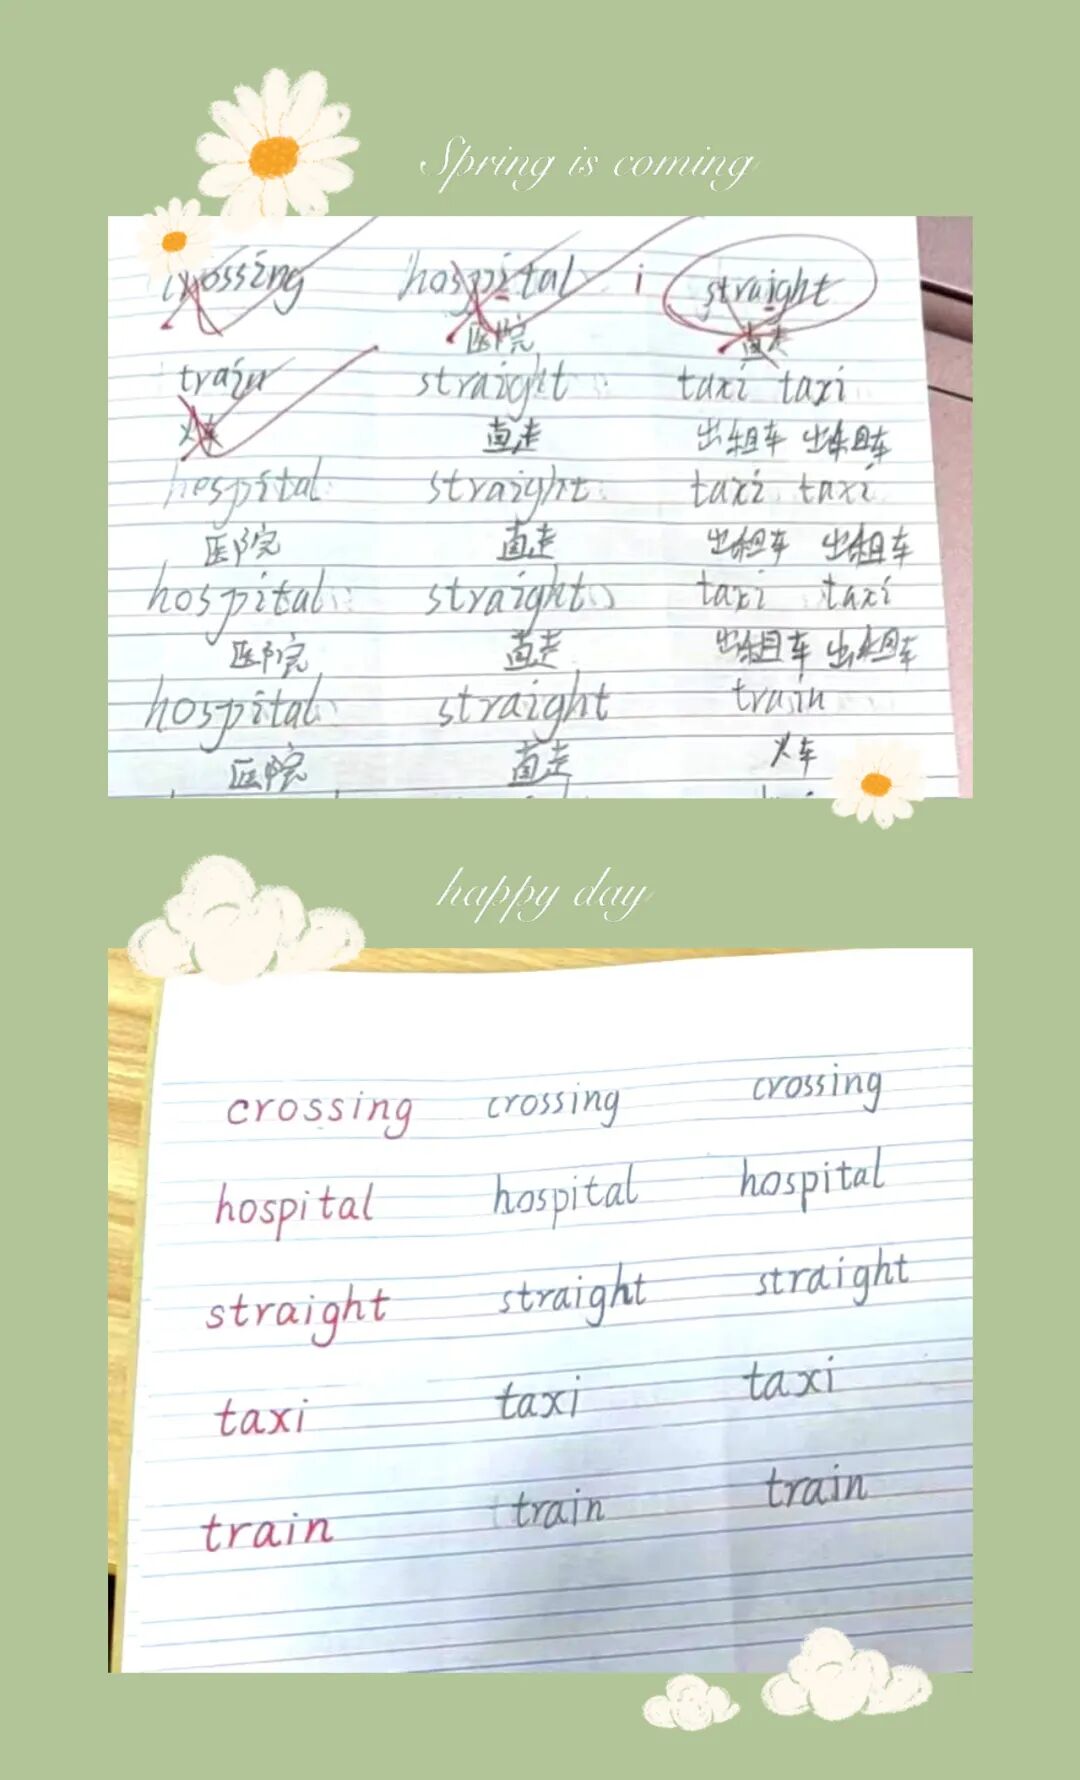 Spring is coming
crossing hospital i straight
医院 直走
train straight taxi taxi
火车 直走 出租车 出租车
hespital straight taxi taxi
医院 直走 出租车 出租车
hospital straight taxi taxi
医院 直走 出租车 出租车
hospital straight train
医院 直走 火车
happy day
crossing crossing crossing
hospital hospital hospital
straight straight straight
taxi taxi taxi
train train train